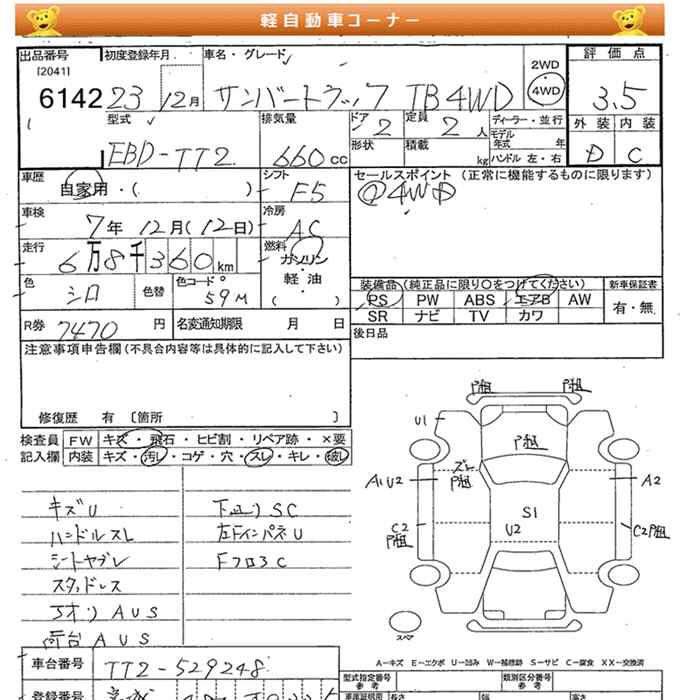 軽自動車コーナー
出品番号 初度登録年月 車名・グレード 2WD 評価点
[2041] 6142 23 12月 サンバートラック TB 4WD 4WD 3.5
型式 排気量 ドア 2 定員 2人 ディーラー・並行 外装 内装
EBD-TT2 660cc 形状 積載 kg モデル年式 年 ハンドル 左・右 D C
車歴 シフト セールスポイント (正常に機能するものに限ります)
自家用・( ) F5 @4WD
車検 7年12月(12日) 冷房 AC
走行 6万8千360km 燃料 ガソリン
色 シロ 色替 色コードNo 59M 軽油 ( )
装備品(純正品に限り○をつけてください) 新車保証書
PS PW ABS エアB AW 有・無
SR ナビ TV カワ
R券 7470円 名変通知期限 月 日 後日品
注意事項申告欄(不具合内容等は具体的に記入して下さい)
修復歴 有 〔箇所 〕
検査員 FW キズ・飛石・ヒビ割・リペア跡・×要
記入欄 内装 キズ・汚レ・コゲ・穴・スレ・キレ・破レ
キズU 下廻りSC
ハンドルスレ 左Fインパネ U
シートヤブレ Fフロ3 C
スタッドレス
アオリ AUS
荷台 AUS
P祖 P祖
U1 P祖
ズレ P祖
A1 U2 A2
S1
C2 P祖 U2 C2 P祖
スペア
A-キズ E-エクボ U-凹み W-補修跡 S-サビ C-腐食 XX-交換済
車台番号 TT2-529248 型式指定番号 参考 類別区分番号 参考
登録番号 長さ 幅 高さ